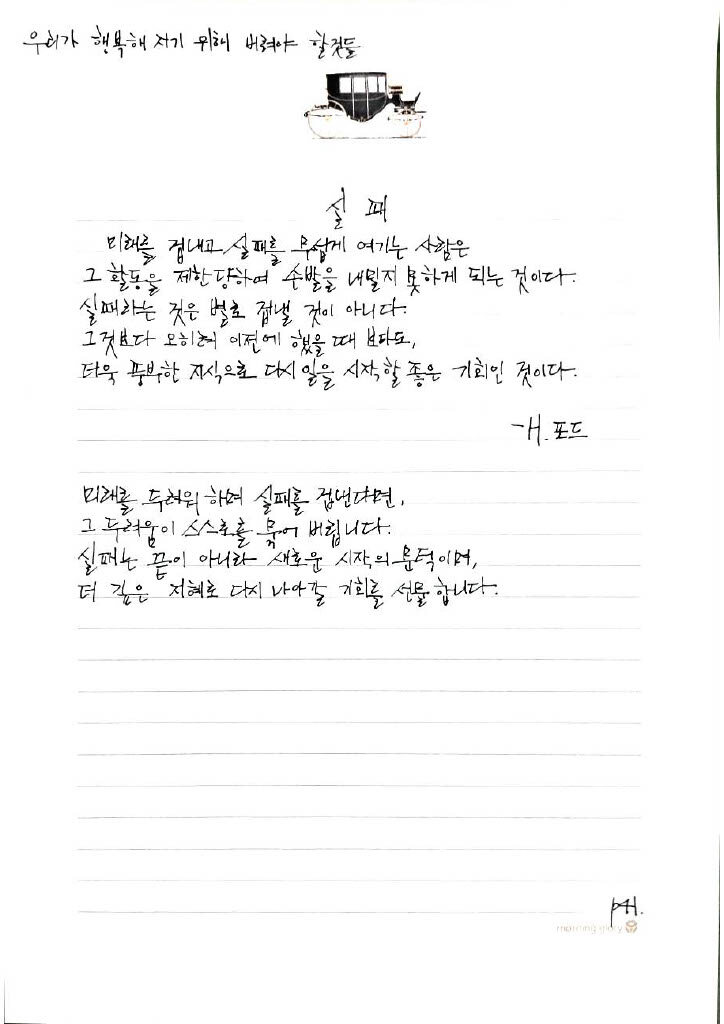 우리가 행복해 지기 위해 버려야 할것들
실 패
미래를 겁내고 실패를 무섭게 여기는 사람은
그 활동을 제한당하여 손발을 내밀지 못하게 되는 것이다.
실패라는 것은 별로 겁낼 것이 아니다.
그것보다 오히려 이전에 했을 때 보다도,
더욱 풍부한 지식으로 다시 일을 시작할 좋은 기회인 것이다.
-H. 포드
미래를 두려워 하며 실패를 겁낸다면,
그 두려움이 스스로를 묶어 버립니다.
실패는 끝이 아니라 새로운 시작의 문턱이며,
더 깊은 지혜로 다시 나아갈 기회를 선물합니다.
morning glory